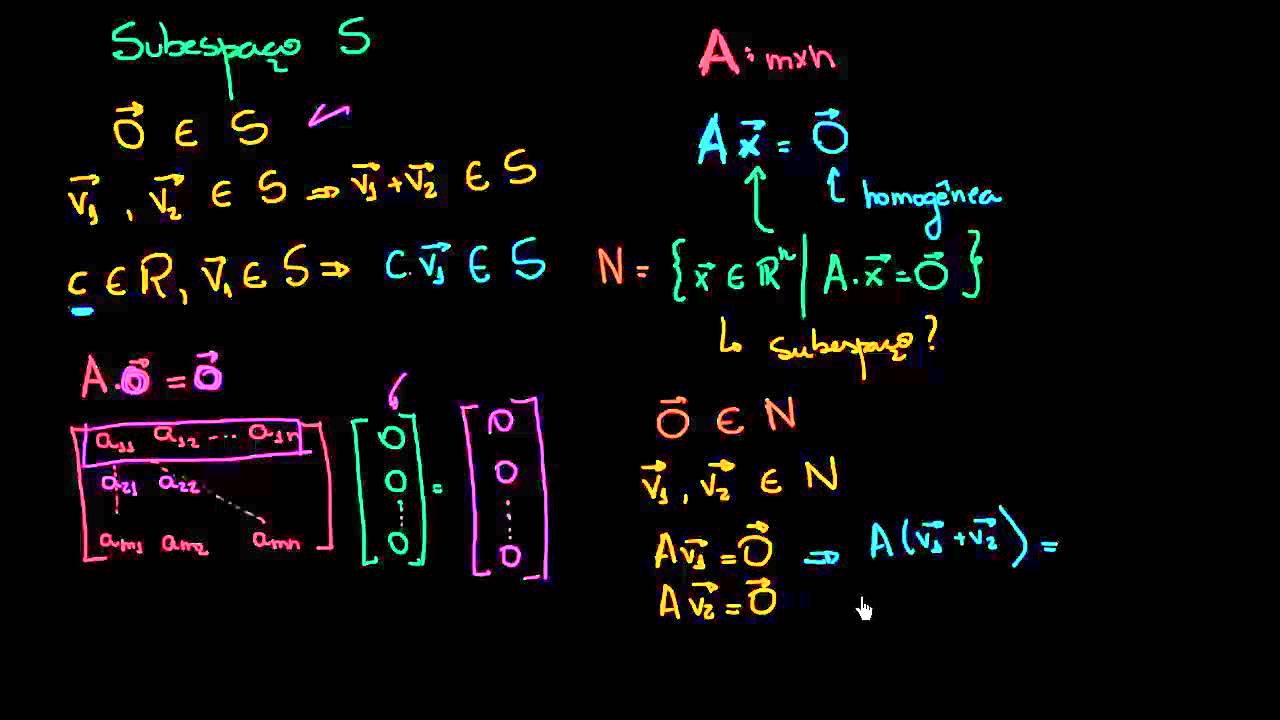 Subespaço S
0⃗ ∈ S ✓
v⃗₁, v⃗₂ ∈ S ⇒ v⃗₁+v⃗₂ ∈ S
c ∈ R, v⃗₁ ∈ S ⇒ c.v⃗₁ ∈ S
A.0⃗ = 0⃗
a₁₁ a₁₂ ... a₁n 0 0
a₂₁ a₂₂ 0 = 0
am₁ am₂ amn 0 0
A: mxn
A x⃗ = 0⃗
homogênea
N = {x⃗ ∈ Rⁿ | A.x⃗ = 0⃗}
↳ subespaço?
0⃗ ∈ N
v⃗₁, v⃗₂ ∈ N
A v⃗₁ = 0⃗ ⇒ A(v⃗₁+v⃗₂) =
A v⃗₂ = 0⃗